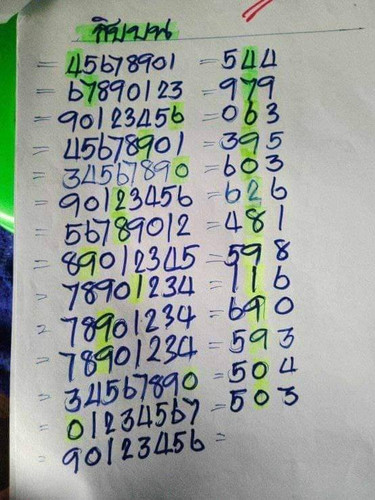 สิบบน
= 45678901 = 544
= 67890123 = 979
= 90123456 = 063
= 45678901 = 395
= 34567890 = 603
= 90123456 = 626
= 56789012 = 481
= 89012345 = 598
= 78901234 = 116
= 78901234 = 690
= 78901234 = 593
= 34567890 = 504
= 01234567 = 503
= 90123456 =